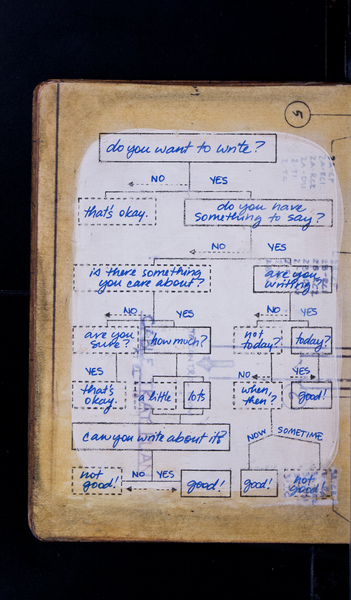 5
do you want to write?
NO YES
that's okay.
do you have
something to say?
NO YES
is there something
you care about?
are you
writing?
NO YES
NO YES
are you
sure?
how much?
not
today?
today?
YES
NO YES
that's
okay.
a little
lots
when,
then?
good!
can you write about it?
NOW SOMETIME
NO YES
not
good!
good!
good!
not
good!